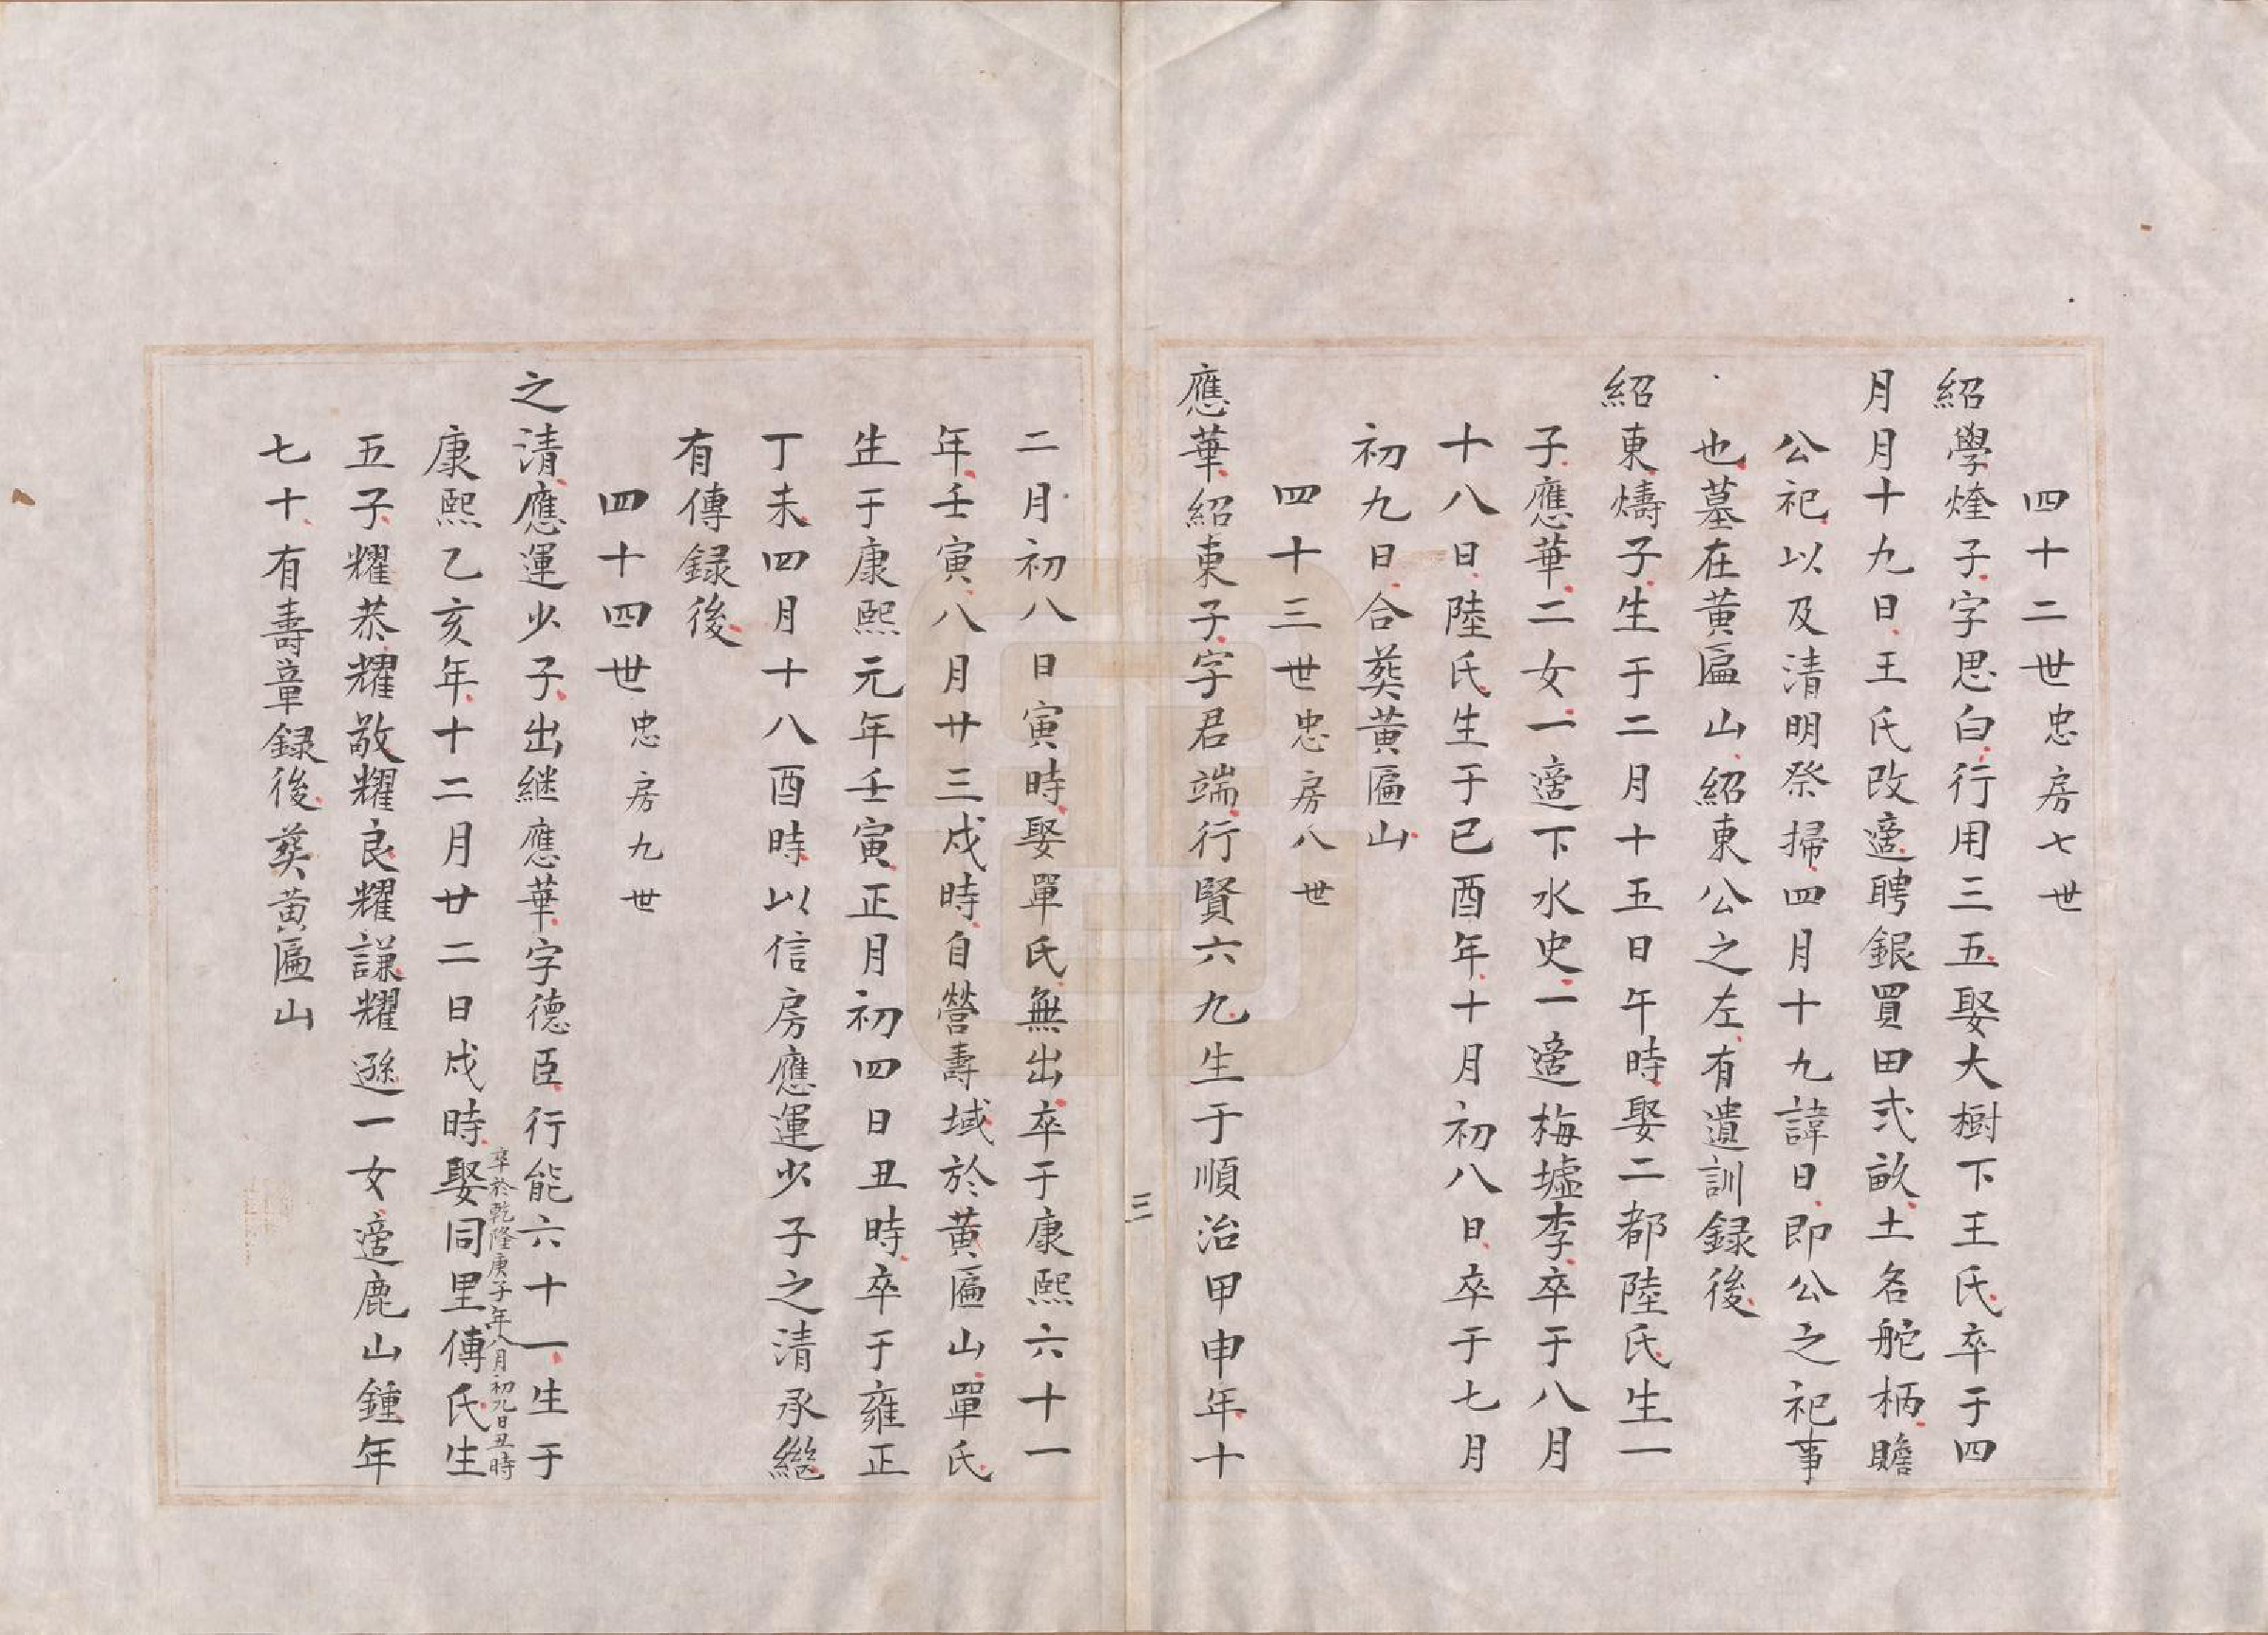 四十二世忠房七世
紹學煃子字思白行用三五娶大樹下王氏卒于四
月月十九日王氏改適聘銀買田弍畝土名舵柄贍
公祀以及清明祭掃四月十九諱日即公之祀事
也墓在黃匾山紹東公之左有遺訓録後
紹東燽子生于二月十五日午時娶二都陸氏生一
子應華二女一適下水史一適梅墟李卒于八月
十八日陸氏生于已酉年十月初八日卒于七月
初九日合葬黃匾山
四十三世忠房八世
應華紹東子字君端行賢六九生于順治甲申年十
三
二月初八日寅時娶單氏無出卒于康熙六十一
年壬寅八月廿三戌時自營壽域於黃匾山單氏
生于康熙元年壬寅正月初四日丑時卒于雍正
丁未四月十八酉時以信房應運少子之清承繼
有傳録後
四十四世忠房九世
之清應運少子出継應華字德臣行能六十一生于
卒於乾隆庚子年八月初九日丑時
康熙乙亥年十二月廿二日戌時娶同里傅氏生
五子耀恭耀敬耀良耀謙耀遜一女適鹿山鍾年
七十有壽章録後葬黃匾山